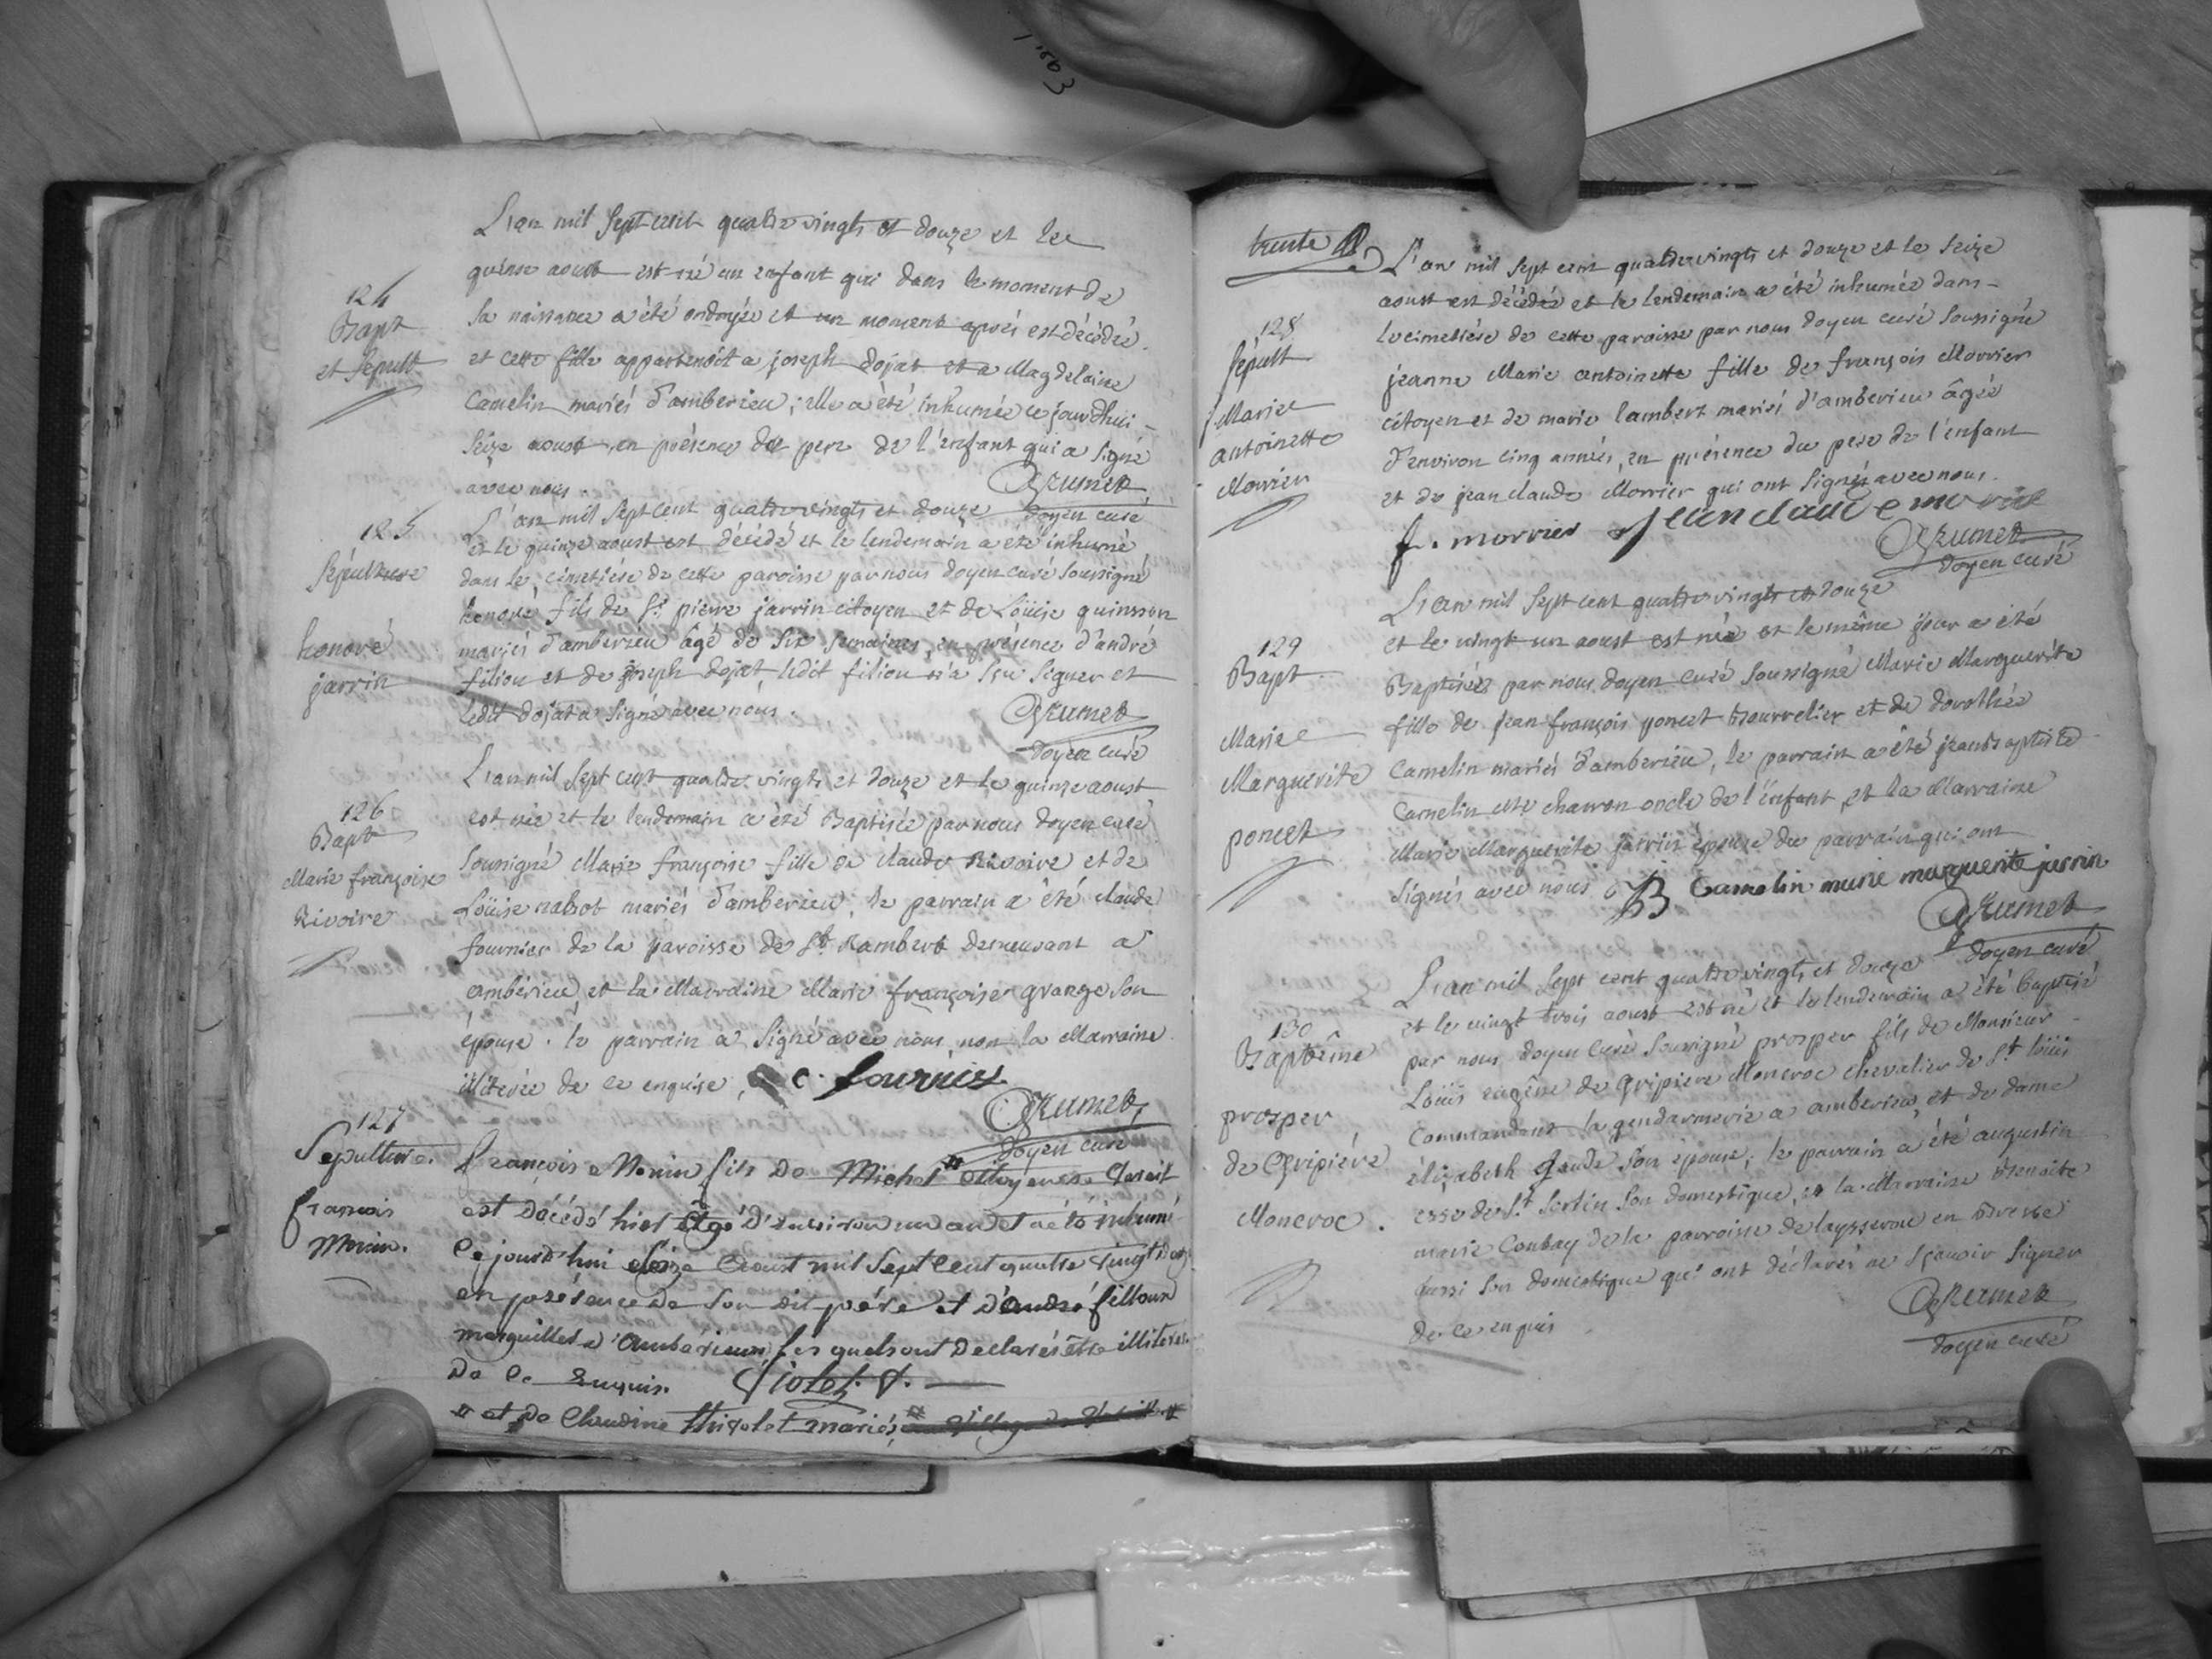 L'an mil Sept cent quatre vingts et douze et le
quinze aoust est né un enfant qui dans le moment de
sa naissance a été ondoyée et un moment après est décédée
et cette fille appartenoit a joseph dojat et a Magdelaine
Camelin mariés d'amberieu ; elle a été inhumée ce jourdhui
seize aoust, en présence du pere de l'enfant qui a signé
avec nous.
Grumet
doyen curé
124
Bapt
et Sepult
L'an mil Sept cent quatre vingts et douze
et le quinze aoust est décédé et le lendemain a été inhumé
dans le cimetière de cette paroisse par nous doyen curé soussigné
honoré fils de Sr pierre jarrin citoyen et de Loüise quinsson
mariés d'amberieu âgé de six semaines, en présence d'andré
filiou et de joseph dojat ledit filiou n'a sçu signer et
ledit dojat a signé avec nous.
Grumet
doyen curé
125
Sépulture
honoré
jarrin
L'an mil Sept cent quatre vingts et douze et le quinze aoust
est née et le lendemain a été Baptisée par nous doyen curé
soussigné Marie françoise fille de claude Rivoire et de
Loüise nabot mariés d'amberieu, le parrain a été claude
fournier de la paroisse de St. Rambert demeurant a
ambérieu et la Marraine Marie françoise grange son
épouse. le parrain a signé avec nous non la Marraine
illiterée de ce enquise, C. fournier
Grumet
doyen curé
126
Bapt
Marie françoise
Rivoire
françois Monin fils De Michel # citoyen
est Décédé hier âgé D'environ un an et a été inhumé
Ce jourd'hui seize aoust mil Sept Cent quatre vingt douze
en présence De Son dit père et D'andré fillioux
marguiller d'Ambérieux les quels ont Déclarés être illiterés
De Ce Enquis.
# et De Claudine thivolet mariés
127
Sepulture.
françois
Monin.
trente
L'an mil sept cent quatre vingts et douze et le seize
aoust est décédée et le lendemain a été inhumée dans
le cimetière de cette paroisse par nous doyen curé soussigné
jeanne Marie antoinette fille de françois Morrier
citoyen et de marie lambert mariés d'amberieu âgée
d'environ cinq années, en présence du pere de l'enfant
et de jean claude Morrier qui ont signés avec nous.
f. morrier jean claude morrier
Grumet
doyen curé
128
Sépult
j. Marie
antoinette
Morrier
L'an mil sept cent quatre vingts et douze
et le vingt un aoust est née et le même jour a été
Baptisée par nous doyen curé soussigné Marie Marguerite
fille de jean françois poncet Bourrelier et de dorothée
Camelin mariés d'amberieu, le parrain a été jean baptiste
Camelin charron oncle de l'enfant et la Marraine
Marie Marguerite jarrin épouse du parrain qui ont
signés avec nous JB Camelin marie marguerite jarrin
Grumet
doyen curé
129
Bapt
Marie
Marguerite
poncet
L'an mil sept cent quatre vingts et douze
et le vingt trois aoust est né et le lendemain a été baptisé
par nous doyen curé soussigné prosper fils de Monsieur
Loüis eugêne de Gripière Moncroc chevalier de St. loüis
Commandant la gendarmerie a amberieu et de dame
élizabeth gaude son épouse ; le parrain a été augustin
esse de St. Sorlin son domestique, et la Marraine Benoite
marie Coubay de la parroisse de laysserone en Bresse
aussi son domestique qui ont déclarés ne sçavoir signer
de ce enquis
Grumet
doyen curé
130
Baptême
prosper
de Gripière
Moncroc.